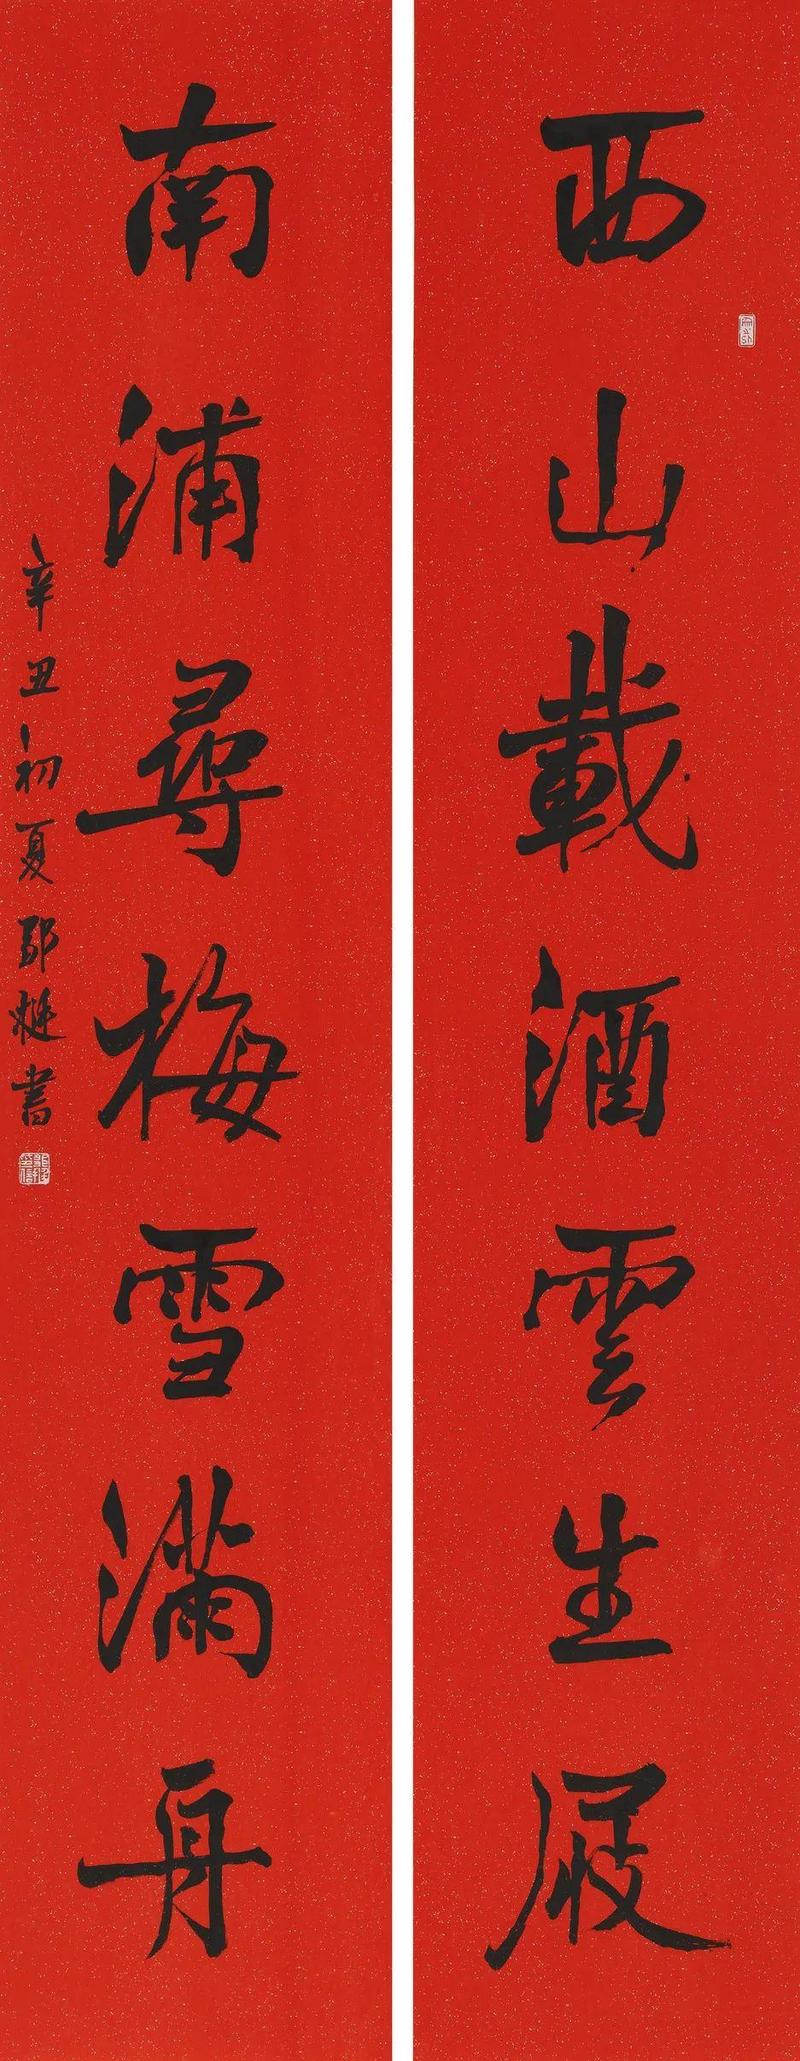 西山載酒雲生屐
南浦尋梅雪滿舟
辛丑初夏 書